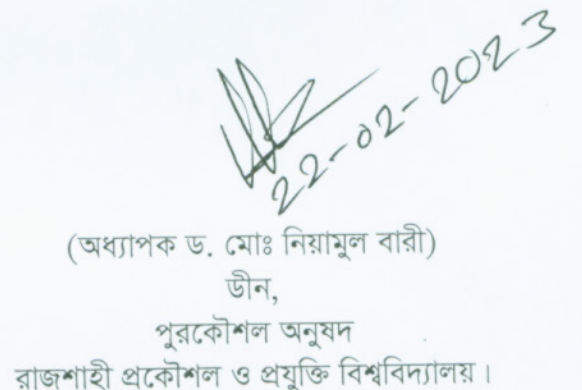 22-02-2023
(অধ্যাপক ড. মোঃ নিয়ামুল বারী)
ডীন,
পুরকৌশল অনুষদ
রাজশাহী প্রকৌশল ও প্রযুক্তি বিশ্ববিদ্যালয়।